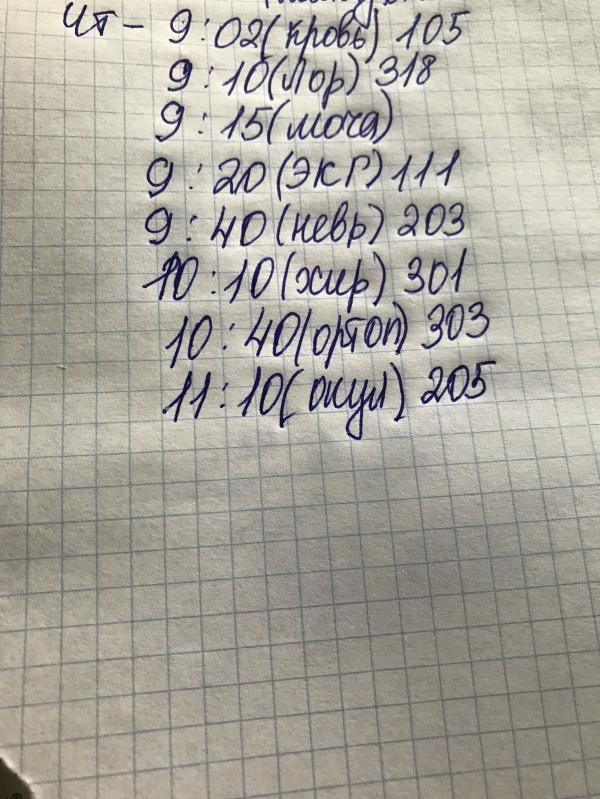 Чт - 9:02 (кровь) 105
9:10 (Лор) 318
9:15 (моча)
9:20 (ЭКГ) 111
9:40 (невр) 203
10:10 (хир) 301
10:40 (ортоп) 303
11:10 (окул) 205